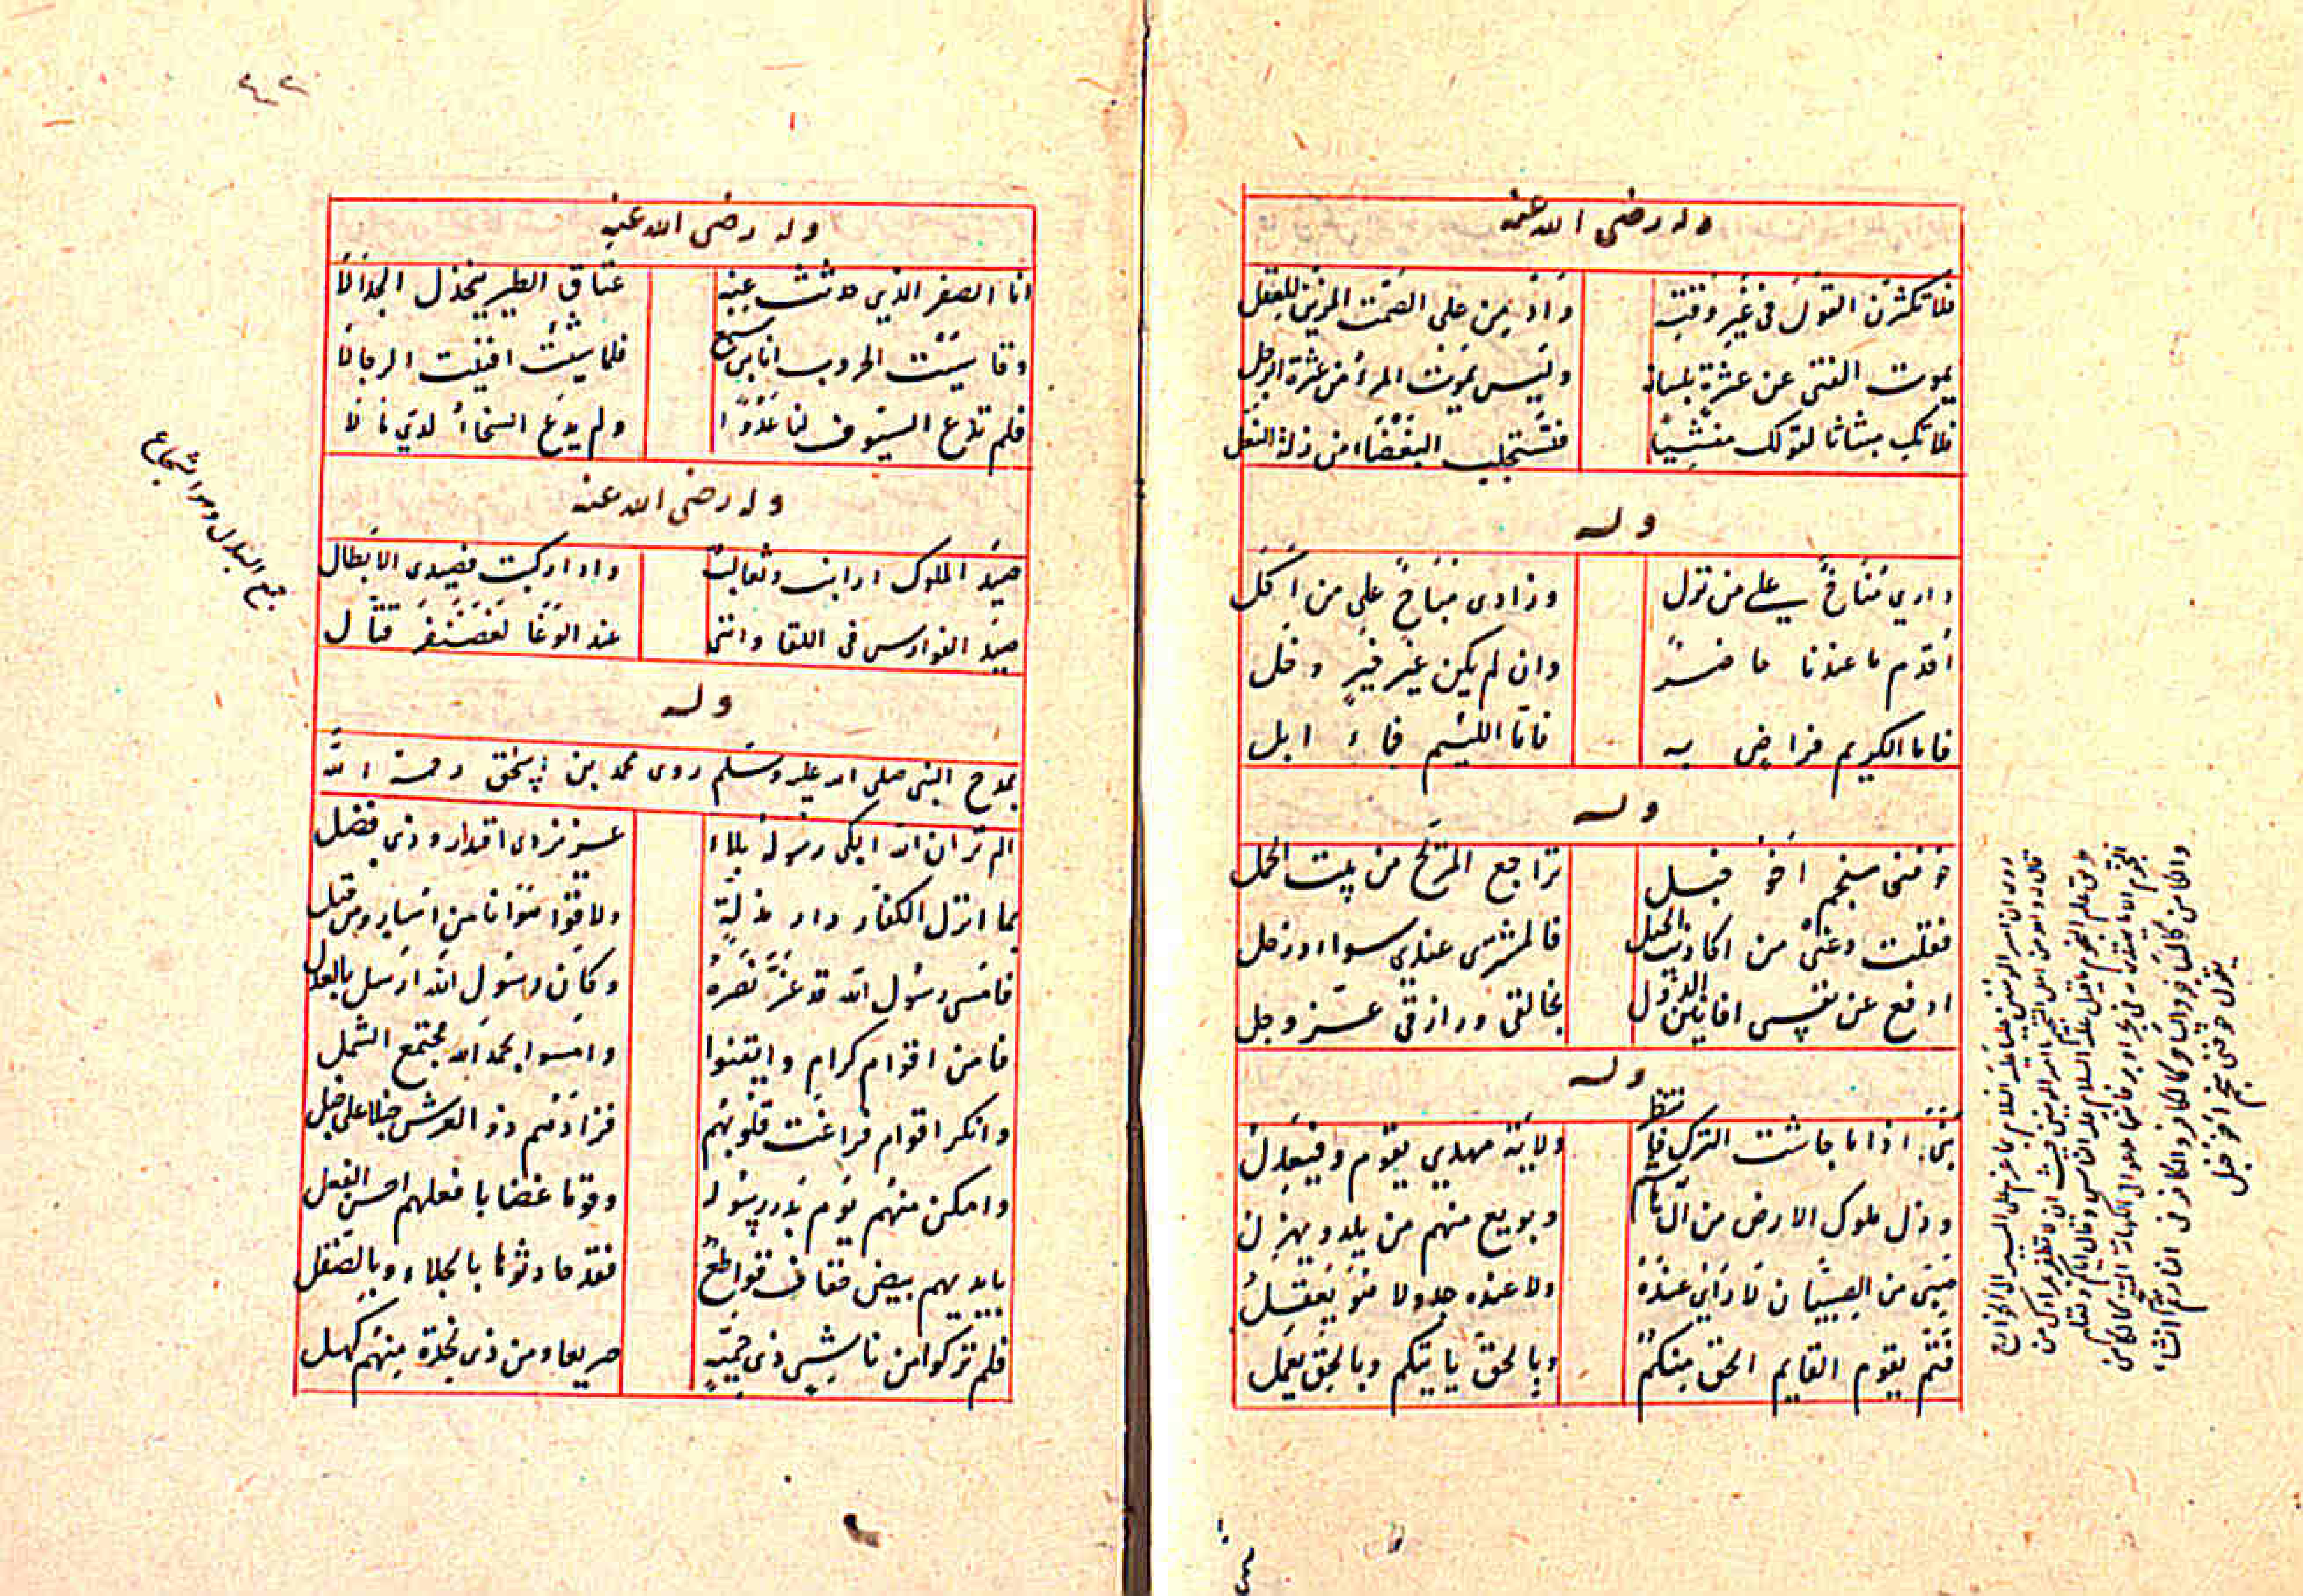 وله رضی الله عنه
فلا تكثرن القول فی غیر وقته وادمن علی الصمت المزین للعقل
یموت الفتی من عثرة بلسانه ولیس یموت المرء من عثرة الرجل
فلا تک مبثاثا لقولک مفشیا فتستجلب البغضاء من زلة النعل
وله
داری مناخ علی من نزل وزادی مباح علی من اكل
اقدم ما عندنا حاضر وان لم یکن غیر خبز وخل
فاما الکریم فراض به فاما اللئیم فماء ابل
وله
خوفنی منجم اخو خبل تراجع المریخ من بیت الحمل
فقلت دعنی من اکاذیب الحیل فالمشتری عندی سواء وزحل
ادفع عن نفسی افانین الدول بخالقی ورازقی عز وجل
وله
بنی اذا ما جاشت الترک فانتظر ولایة مهدی یقوم ویعدل
وذل ملوک الارض من آل هاشم وبویع منهم من یلذ ویهزل
صبی من الصبیان لا رأی عنده ولا عنده جد ولا هو یعقل
فثم یقوم القایم الحق منکم وبالحق یاتیکم وبالحق یعمل
وله رضی الله عنه
انا الصقر الذی حدثت عنه عتاق الطیر تنجدل انجدالا
وقاسیت الحروب انا ابن سبع فلما شبت افنیت الرجالا
فلم تدع السیوف لنا عدوا ولم یدع السخاء لدی مالا
وله رضی الله عنه
صید الملوک ارانب وثعالب واذا رکبت فصیدی الابطال
صید الفوارس فی اللقا واننی عند الوغا لغضنفر قتال
وله
یمدح النبی صلی الله علیه وسلم روی محمد بن اسحق رحمه الله
الم تر ان الله ابلی رسوله بلاء عزیز ذی اقتدار وذی فضل
بما انزل الکفار دار مذلة ولاقوا هوانا من اسار ومن قتل
فامسی رسول الله قد عز نصره وکان رسول الله ارسل بالعدل
فامن اقوام کرام وایقنوا وامسوا بحمد الله مجتمع الشمل
وانکر اقوام فزاغت قلوبهم فزادهم ذو العرش خبلا علی خبل
وامکن منهم یوم بدر رسوله وقوما غضابا فعلهم احسن الفعل
بایدیهم بیض خفاف قواطع فقد حادثوها بالجلاء وبالصقل
فلم ترکوا من ناشئ ذی حمیة صریعا ومن ذی نجدة منهم کهل